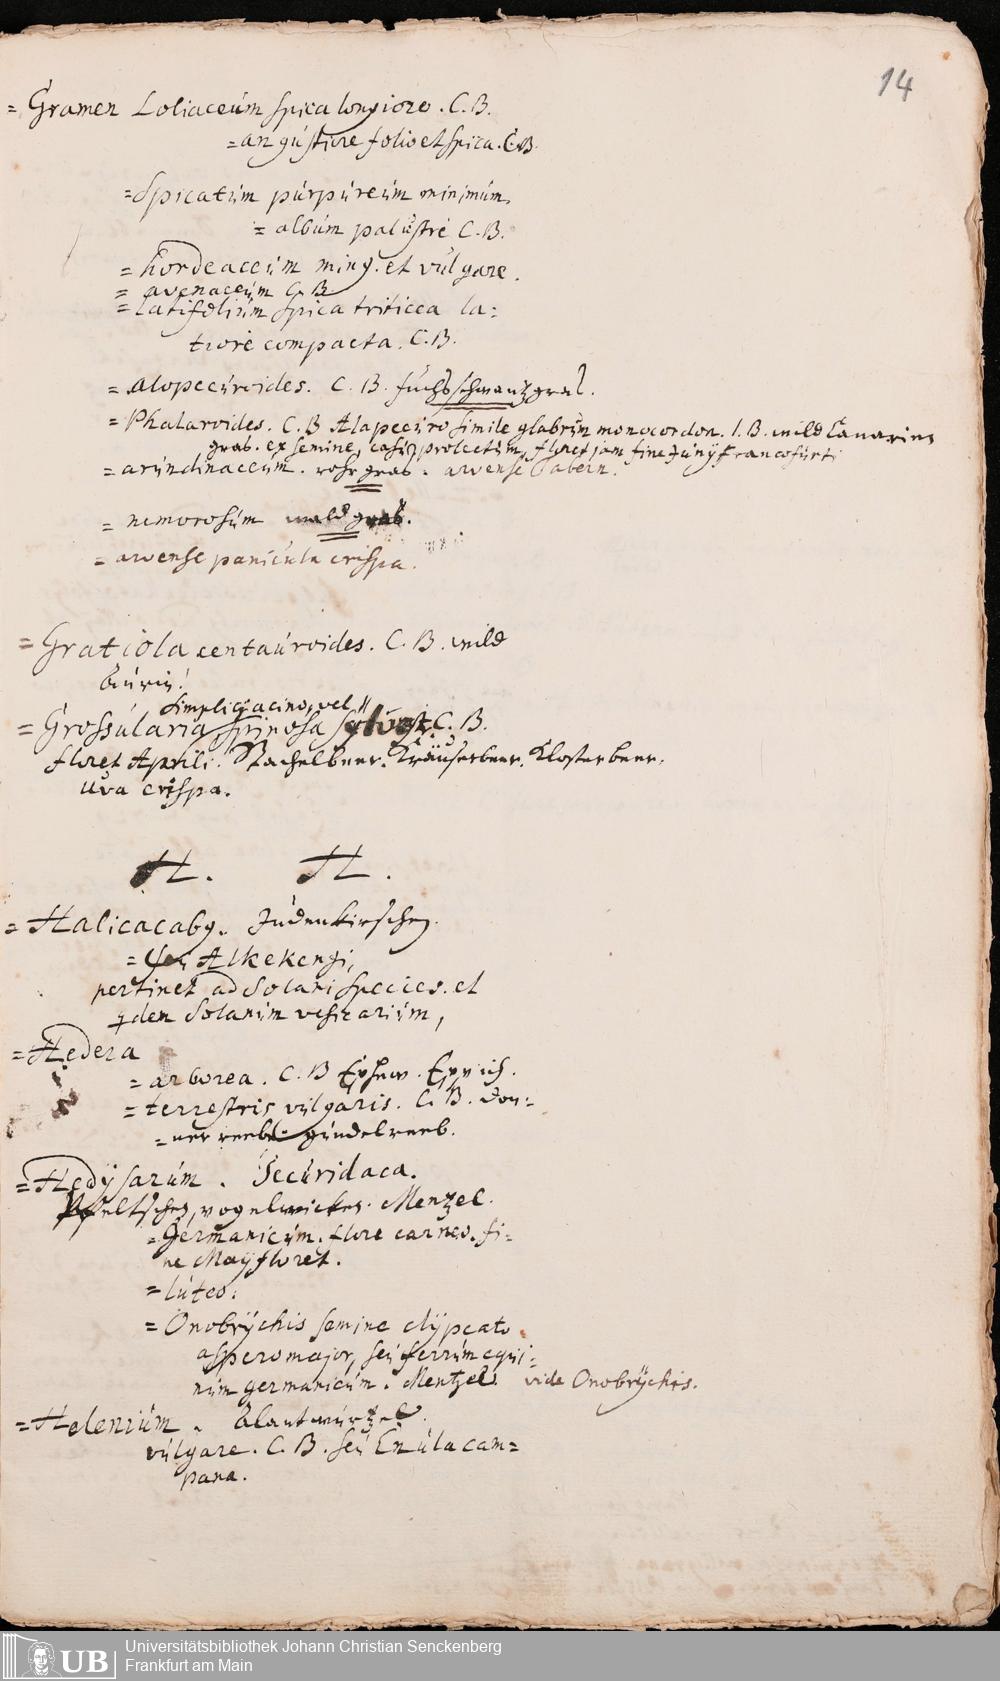 14
= Gramen Loliaceum spica longiore. C.B.
= angustiore folio et spica. C.B.
= Spicatum purpureum minimum,
= album palustre C.B.
= hordeaceum ming. et vulgare.
= avenaceum C.B
= latifolium spica triticea la=
tiore compacta. C.B.
= alopecuroides. C.B. fuchsschwantzgraß.
= Phalaroides. C.B Alapecuro simile glabrum monocordon. I.B. wild Canarien
graß. ex semine, casu projectum, floret jam fine Junÿ Francofurti
= arundinaceum. rohrgraß. arvense Tabern.
= nemorosum waldgraß.
= arvense panicula crispa.
= Gratiola centauroides. C.B. wild
Aurin!
simplici acino, vel
= Grossularia spinosa sylvestr. C.B.
floret Aprili. Stachelbeer. Kräuserbeer. Klosterbeer.
Uva crispa.
H. H.
= Halicacaby. Judenkirschen.
= seu Alkekengi,
pertinet ad Solani species. et
qdem Solanum vesicarium,
= Hedera
= arborea. C.B Ephew. Eppich.
= terrestris vulgaris. C.B. don=
= ner reebe gundelreeb.
= Hedysarum. Securidaca.
Peltschen, vogelwicken. Menzel.
= Germanicum. flore carneo. fi=
ne Maÿ floret.
= luteo.
= Onobrÿchis semine clÿpeato
aspero major, seu ferrum equi=
num germanicum. Mentzel. vide Onobrÿchis.
= Helenium. Alantwurtzel.
vulgare. C.B. seu Enula cam=
pana.
UB
Universitätsbibliothek Johann Christian Senckenberg
Frankfurt am Main